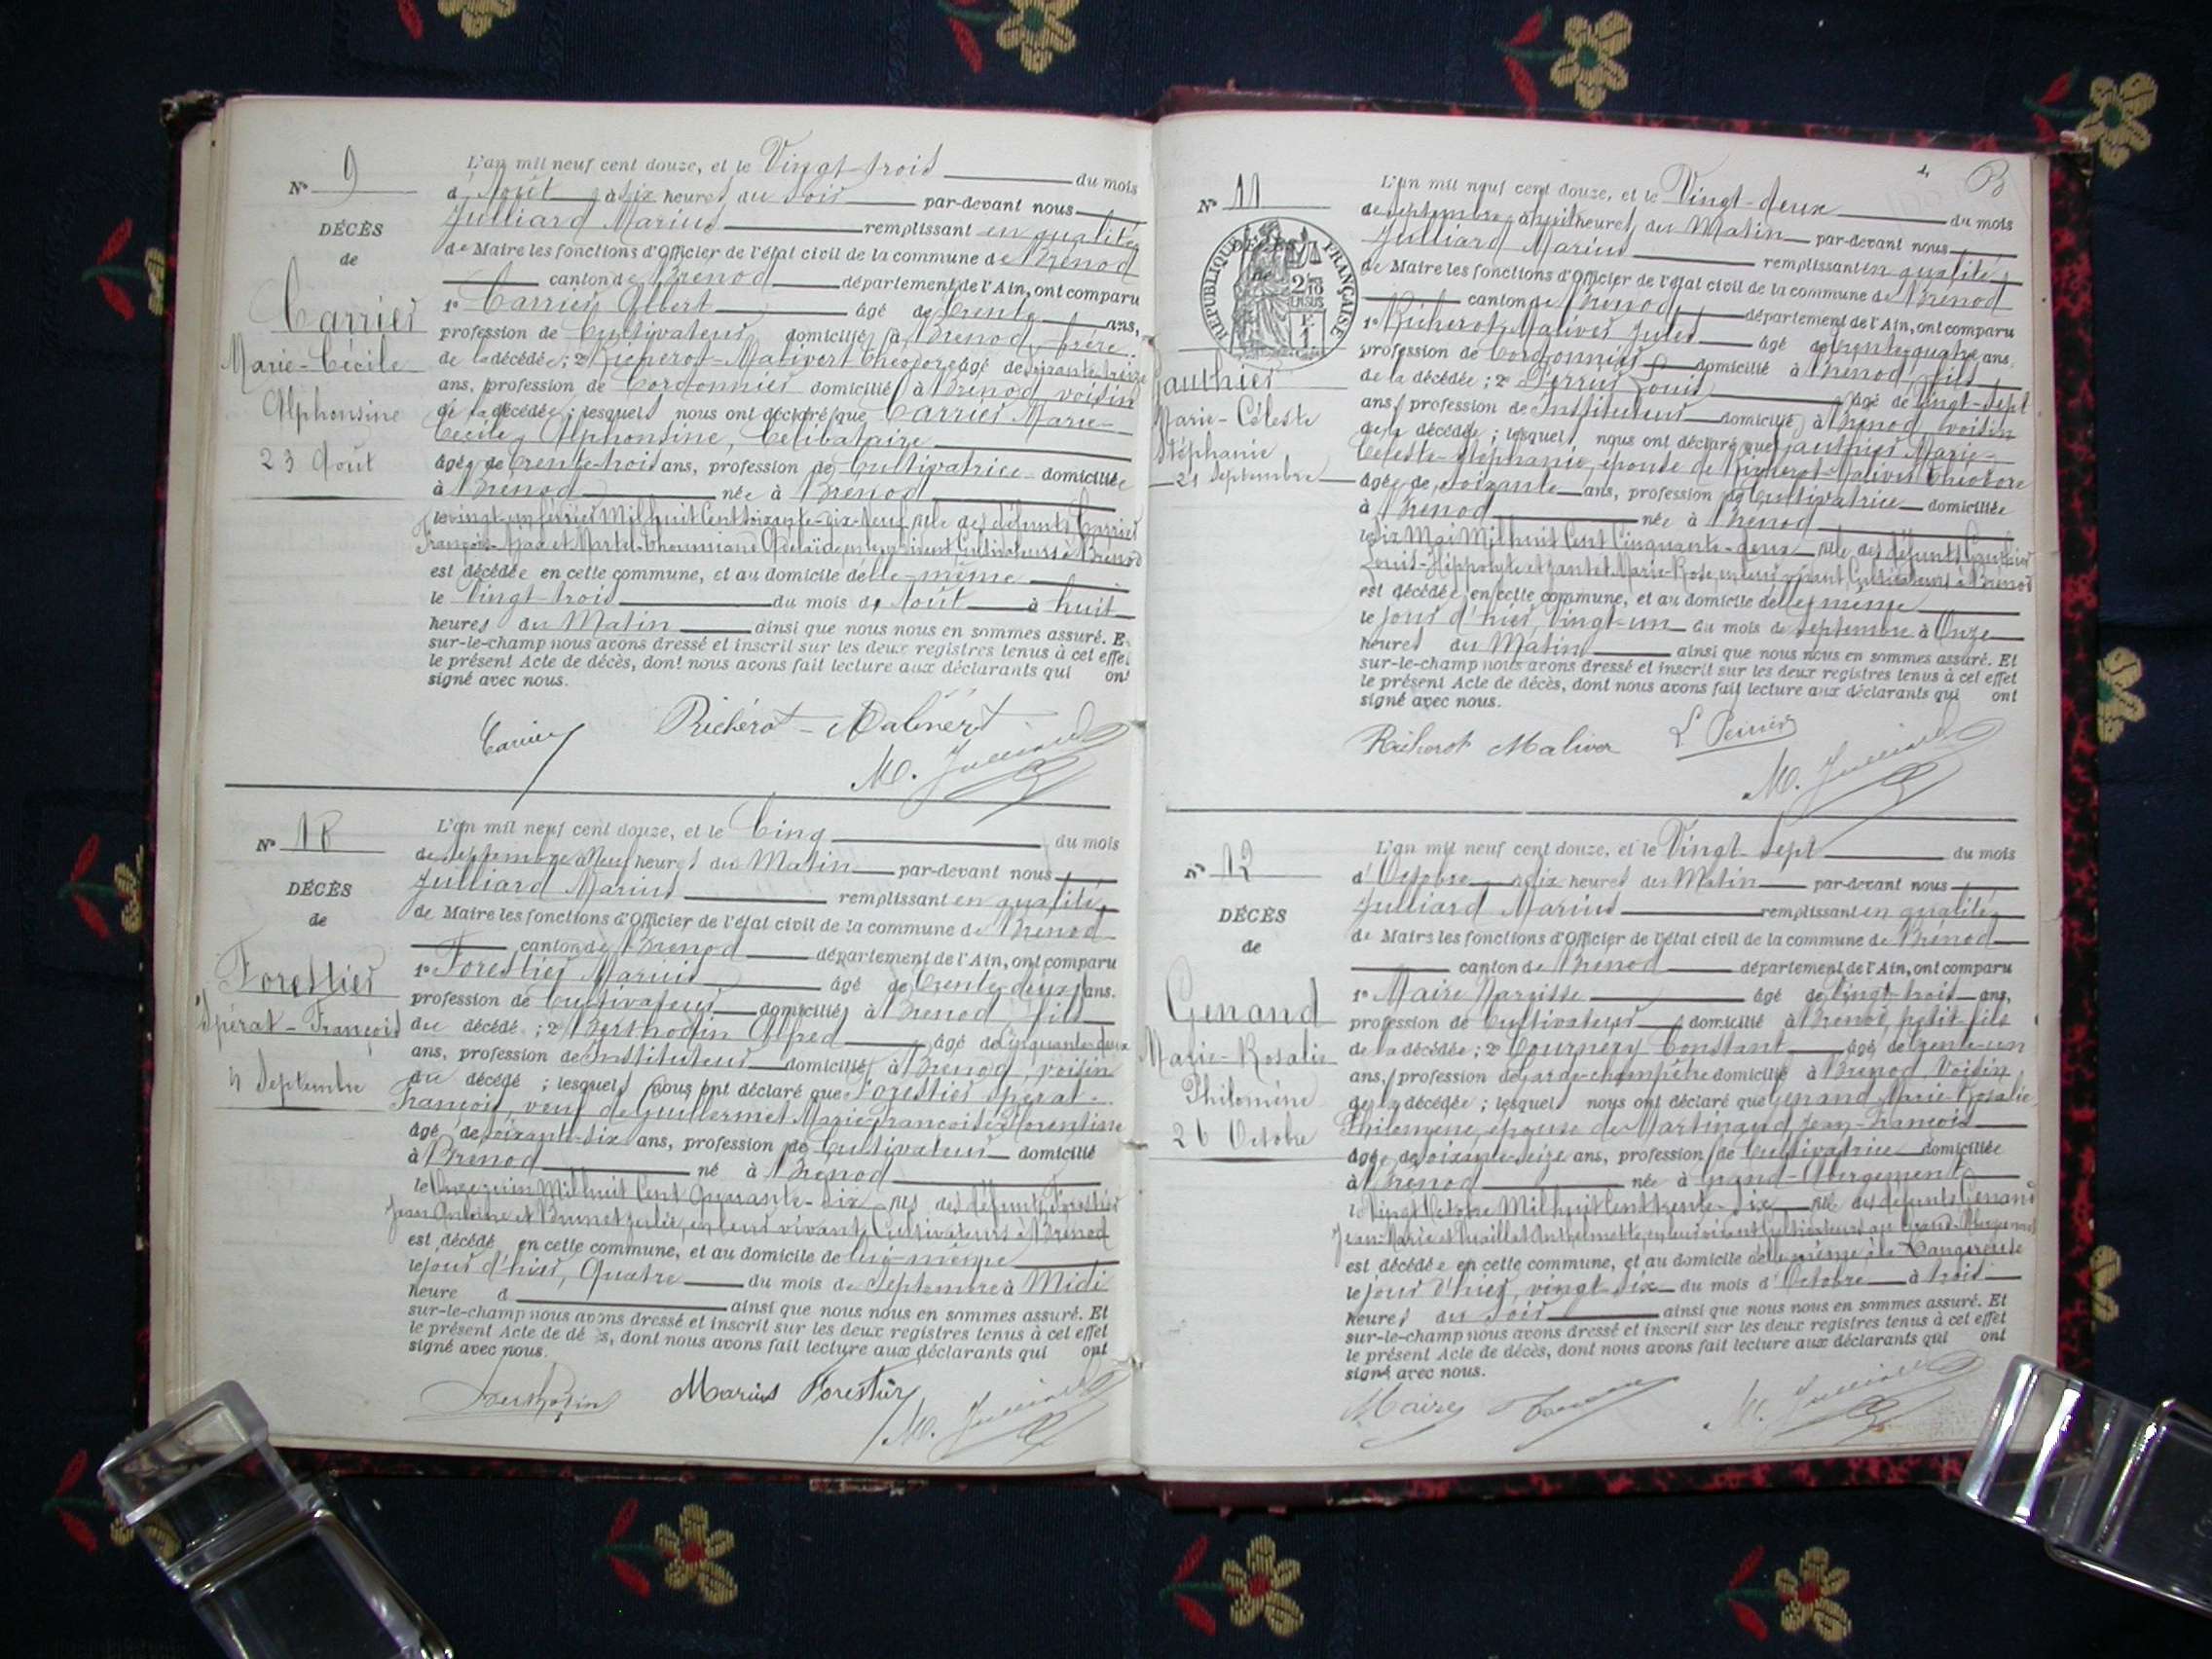 N° 9
DÉCÈS
de
Carrier
Marie-Cécile
Alphonsine
23 Août
L'an mil neuf cent douze, et le Vingt-trois du mois
d'Août à six heures du Soir par-devant nous
Julliard Marius remplissant en qualité
de Maire les fonctions d'Officier de l'état civil de la commune de Brénod
canton de Brénod département de l'Ain, ont comparu
1° Carrier Albert âgé de trente ans,
profession de Cultivateur domicilié à Brénod, frère
de la décédée; 2° Richerot-Malivert Théodore âgé de soixante-treize
ans, profession de Cordonnier domicilié à Brénod, voisin
de la décédée; lesquels nous ont déclaré que Carrier Marie-
Cécile, Alphonsine, Célibataire
âgée de trente-trois ans, profession de Cultivatrice domiciliée
à Brénod née à Brénod
le vingt-un février Mil huit Cent soixante-dix-neuf, fille des défunts Carrier
François- et Martel- Adélaïde, en leur vivant Cultivateurs à Brénod
est décédée en cette commune, et au domicile d'elle-même
le Vingt-trois du mois d'Août à huit
heures du Matin ainsi que nous nous en sommes assuré. E
sur-le-champ nous avons dressé et inscrit sur les deux registres tenus à cet effet
le présent Acte de décès, dont nous avons fait lecture aux déclarants qui ont
signé avec nous.
Carrier Richérot-Malivert
M. Julliard
N° 10
DÉCÈS
de
Forestier
Spérat-François
4 Septembre
L'an mil neuf cent douze, et le Cinq du mois
de Septembre à Neuf heures du Matin par-devant nous
Julliard Marius remplissant en qualité
de Maire les fonctions d'Officier de l'état civil de la commune de Brénod
canton de Brénod département de l'Ain, ont comparu
1° Forestier Marius âgé de trente-deux ans.
profession de Cultivateur domicilié à Brénod, fils
du décédé; 2° Berthodin Alfred âgé de cinquante-deux
ans, profession de Instituteur domicilié à Brénod, voisin
du décédé; lesquels nous ont déclaré que Forestier Spérat-
François, veuf de Guillermet Marie Françoise Florentine
âgé de soixante-six ans, profession de Cultivateur domicilié
à Brénod né à Brénod
le Onze juin Mil huit Cent Quarante-Six fils des défunts Forestier
Jean Antoine et Brunet, en leur vivant, Cultivateurs à Brénod
est décédé en cette commune, et au domicile de lui-même
le jour d'hier, Quatre du mois de Septembre à Midi
heure d ainsi que nous nous en sommes assuré. Et
sur-le-champ nous avons dressé et inscrit sur les deux registres tenus à cet effet
le présent Acte de dé s, dont nous avons fait lecture aux déclarants qui ont
signé avec nous.
Berthodin Marius Forestier
M. Julliard
B
N° 11
RÉPUBLIQUE FRANÇAISE
DÉCÈS
de
Gauthier
Marie-Céleste
Stéphanie
21 Septembre
L'an mil neuf cent douze, et le Vingt-deux du mois
de Septembre, à huit heures du Matin par-devant nous
Julliard Marius remplissant en qualité
de Maire les fonctions d'Officier de l'état civil de la commune de Brénod
canton de Brénod département de l'Ain, ont comparu
1° Richerot-Maliver Jules âgé de trente-quatre ans,
profession de Cordonnier domicilié à Brénod, fils
de la décédée; 2° Perrier Louis âgé de Vingt-sept
ans, profession de Instituteur domicilié à Brénod, voisin
de la décédée; lesquels nous ont déclaré que Gauthier Marie-
Céleste-Stéphanie, épouse de Richerot-Maliver Théodore
âgée de soixante ans, profession de Cultivatrice domiciliée
à Brénod née à Brénod
le dix Mai Mil huit Cent Cinquante-deux fille des défunts Gauthier
Louis-Hippolyte et Jantet Marie-Rose, en leur vivant, Cultivateurs à Brénod
est décédée en cette commune, et au domicile d'elle-même
le jour d'hier, Vingt-un du mois de Septembre à Onze
heures du Matin ainsi que nous nous en sommes assuré. Et
sur-le-champ nous avons dressé et inscrit sur les deux registres tenus à cet effet
le présent Acte de décès, dont nous avons fait lecture aux déclarants qui ont
signé avec nous.
Richerot Maliver L. Perrier
M. Julliard
N° 12
DÉCÈS
de
Genand
Marie-Rosalie
Philomène
26 Octobre
L'an mil neuf cent douze, et le Vingt-Sept du mois
d'Octobre à dix heures du Matin par-devant nous
Julliard Marius remplissant en qualité
de Maire les fonctions d'Officier de l'état civil de la commune de Brénod
canton de Brénod département de l'Ain, ont comparu
1° Maire Narcisse âgé de Vingt-trois ans,
profession de Cultivateur domicilié à Brénod, petit-fils
de la décédée; 2° Tournery Constant âgé de trente-un
ans, profession de Garde-champêtre domicilié à Brénod, Voisin
de la décédée; lesquels nous ont déclaré que Genand Marie-Rosalie
Philomène, épouse de Martinand Jean-François
âgée de soixante-seize ans, profession de Cultivatrice domiciliée
à Brénod née à Grand-Abergement
le Vingt Octobre Mil huit Cent trente-six fille des défunts Genand
Jean-Marie et Anthelmette, en leur vivant Cultivateurs au Grand-Abergement
est décédée en cette commune, et au domicile d'elle-même à la Dangereuse
le jour d'hier, vingt-six du mois d'Octobre à trois
heures du Soir ainsi que nous nous en sommes assuré. Et
sur-le-champ nous avons dressé et inscrit sur les deux registres tenus à cet effet
le présent Acte de décès, dont nous avons fait lecture aux déclarants qui ont
signé avec nous.
Maire M. Julliard